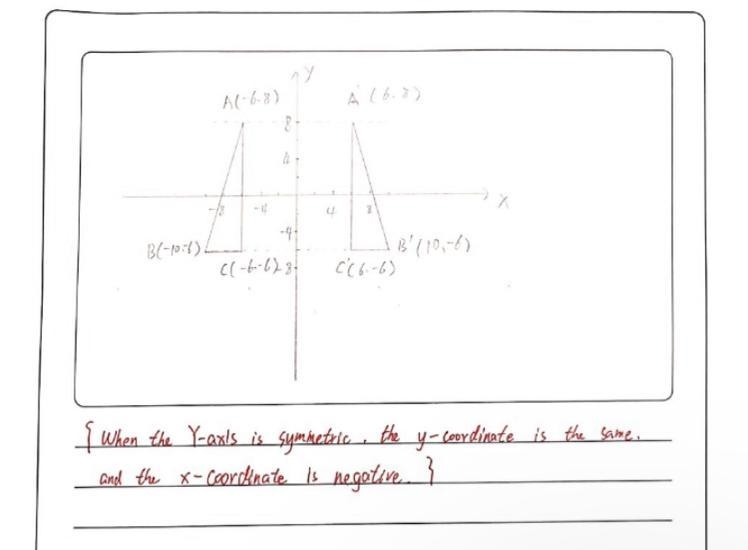 Y
A(-6.8) A' (6.8)
8
4
X
-8 -4 4 8
-4
B(-10-6) B'(10,-6)
C(-6-6) -8 C'(6.-6)
{When the Y-axis is symmetric, the y-coordinate is the same.
and the x-coordinate is negative.}